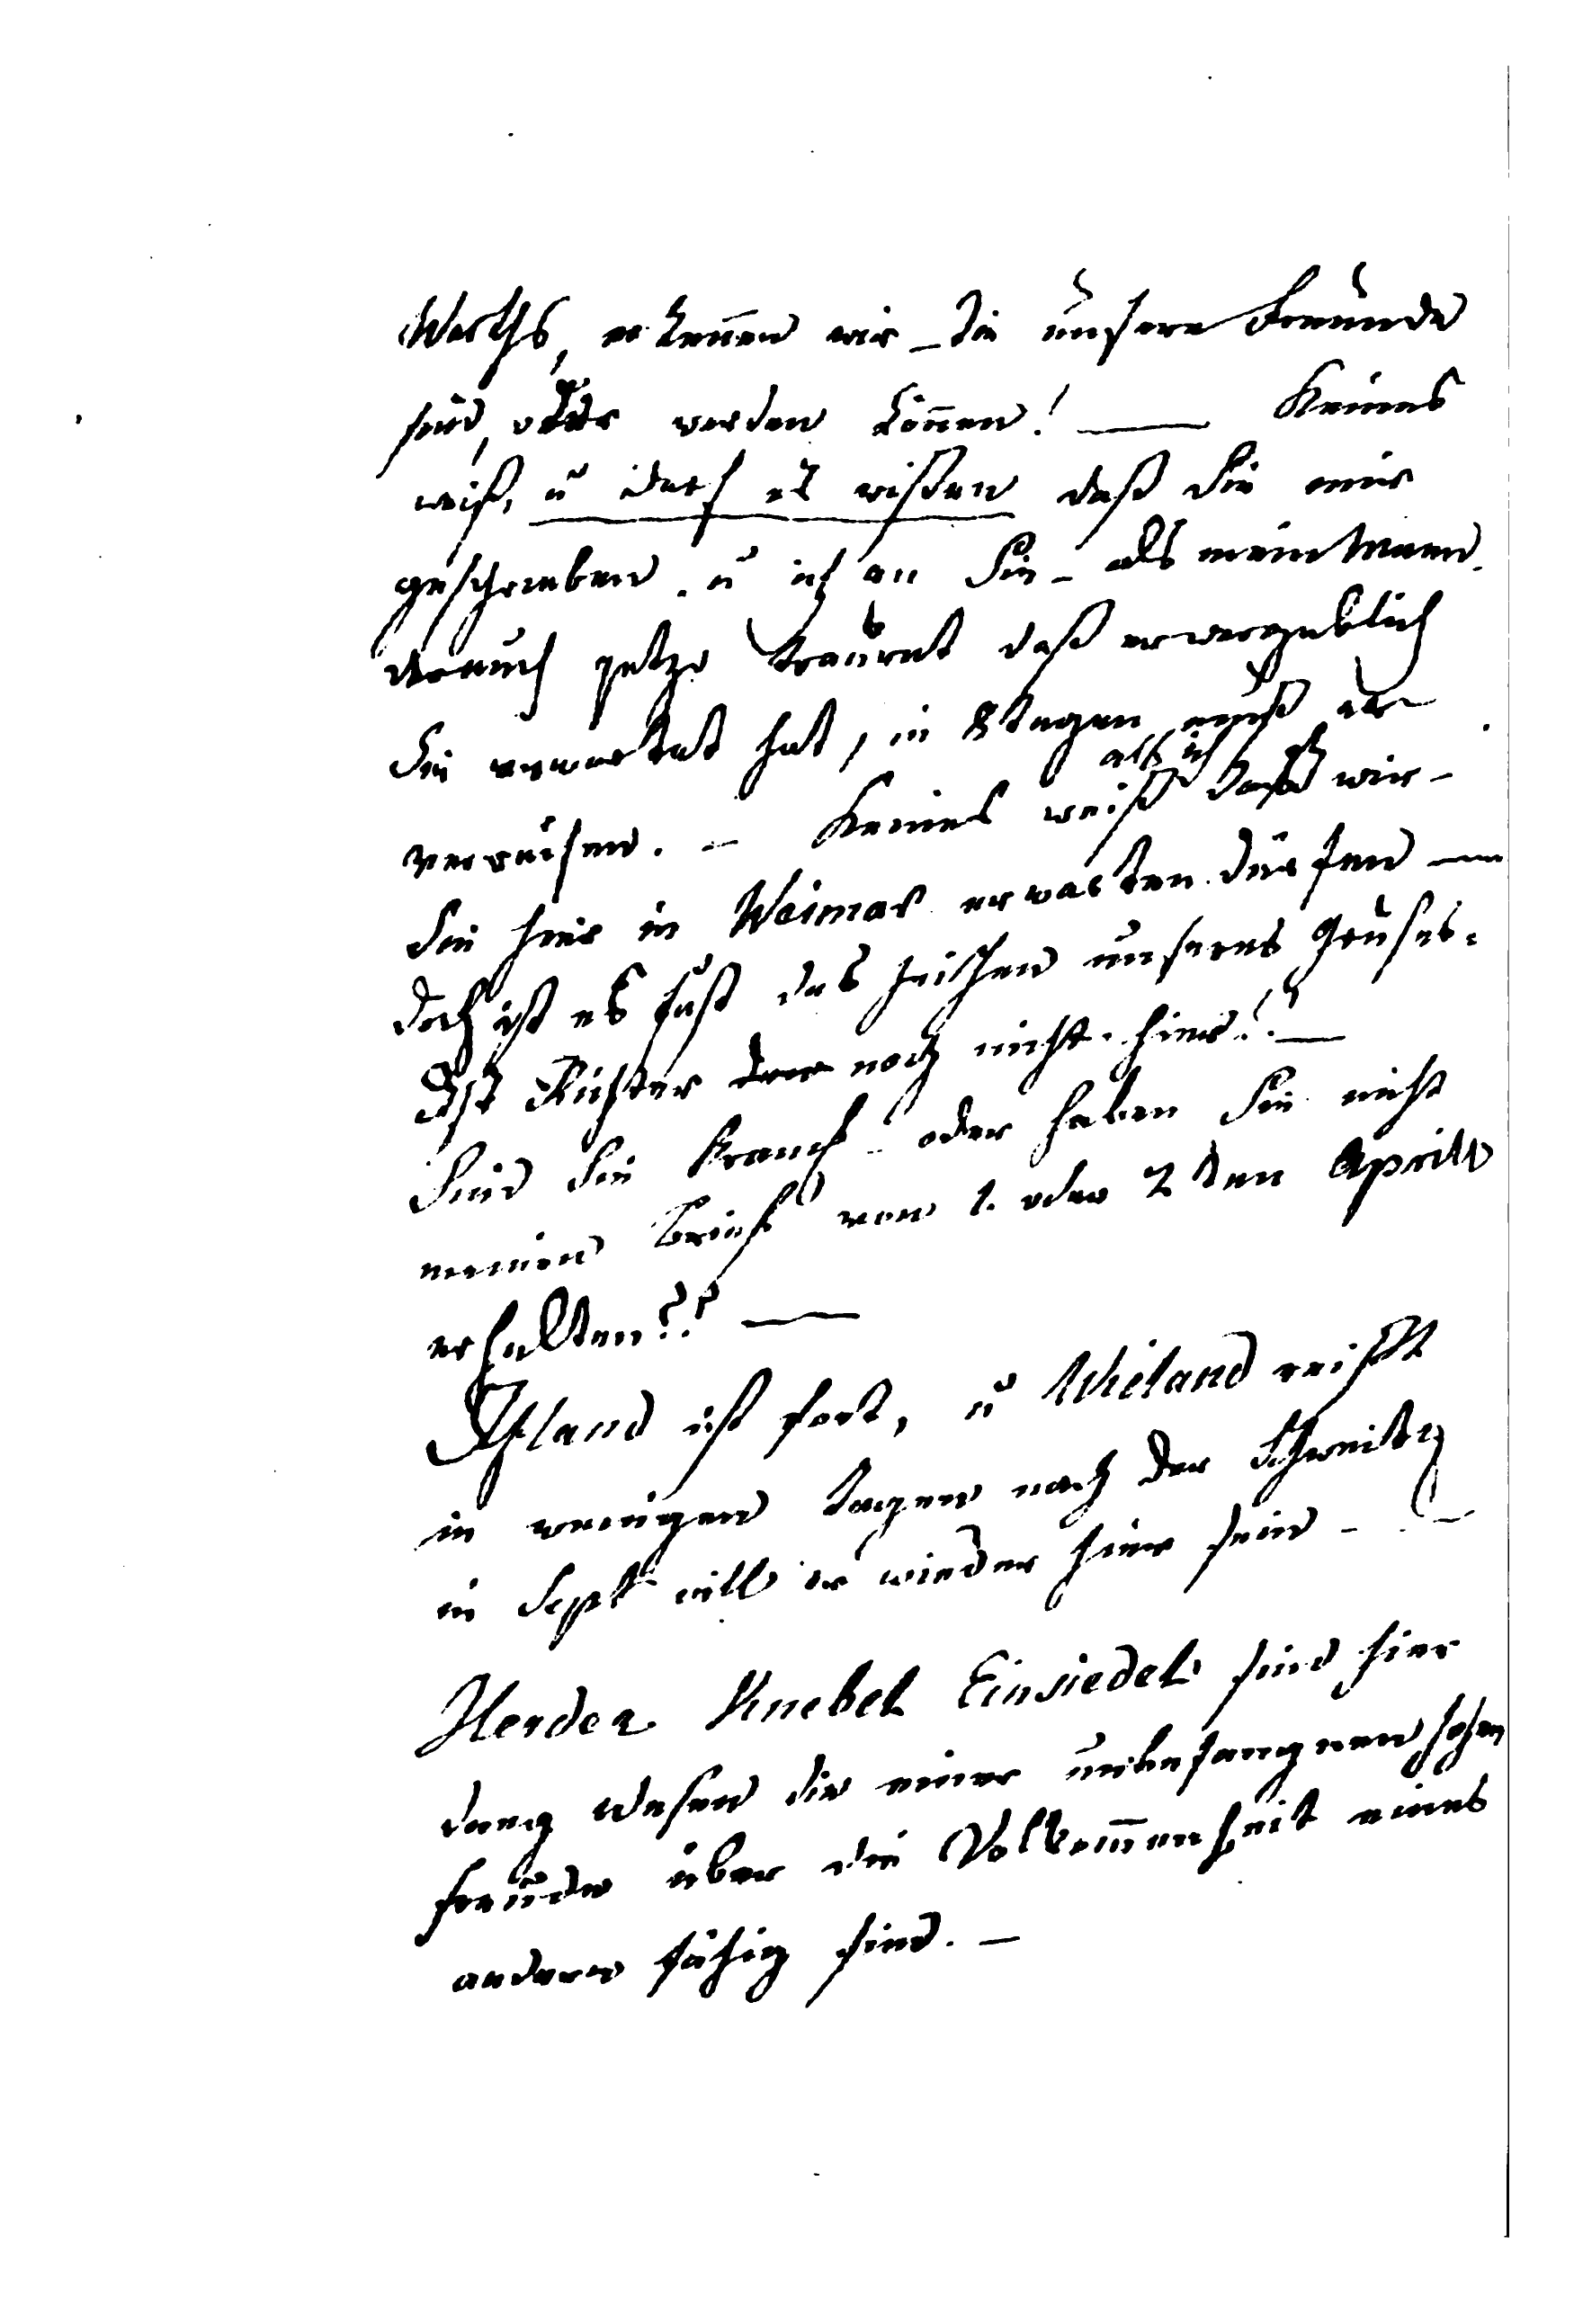 Werths, erkennen wir – die unsere Freunde
sind, oder werden könen! — Keines
weiß, u darf es wißen daß Sie mir
geschrieben. u ich an Sie – als mein Mann.
der auch jetzo trauret daß er vergeblich
Sie erwartet hat, in 8 tagen muß er
verreisen. – Keines weiß als ich daß wir –
Sie hier in Weimar erwarten dürfen —
doch ist es fast das Zeichen unseres Gruses.
Ist Richter noch nicht hier? —
Sind Sie Kranck – oder haben Sie nicht
meinen Brief von 1. oder 2 ten Aprill
erhalten?? —
Ifland ist fort, u Wieland reißt
in wenigen tagen nach der Schweitz
in Sept will er wieder hier sein –
Herder Knebel Einsiedel sind hier
drey Wesen die einer unbefangnen hohen
freude über die Volkomenheit eines
andern fähig sind. –